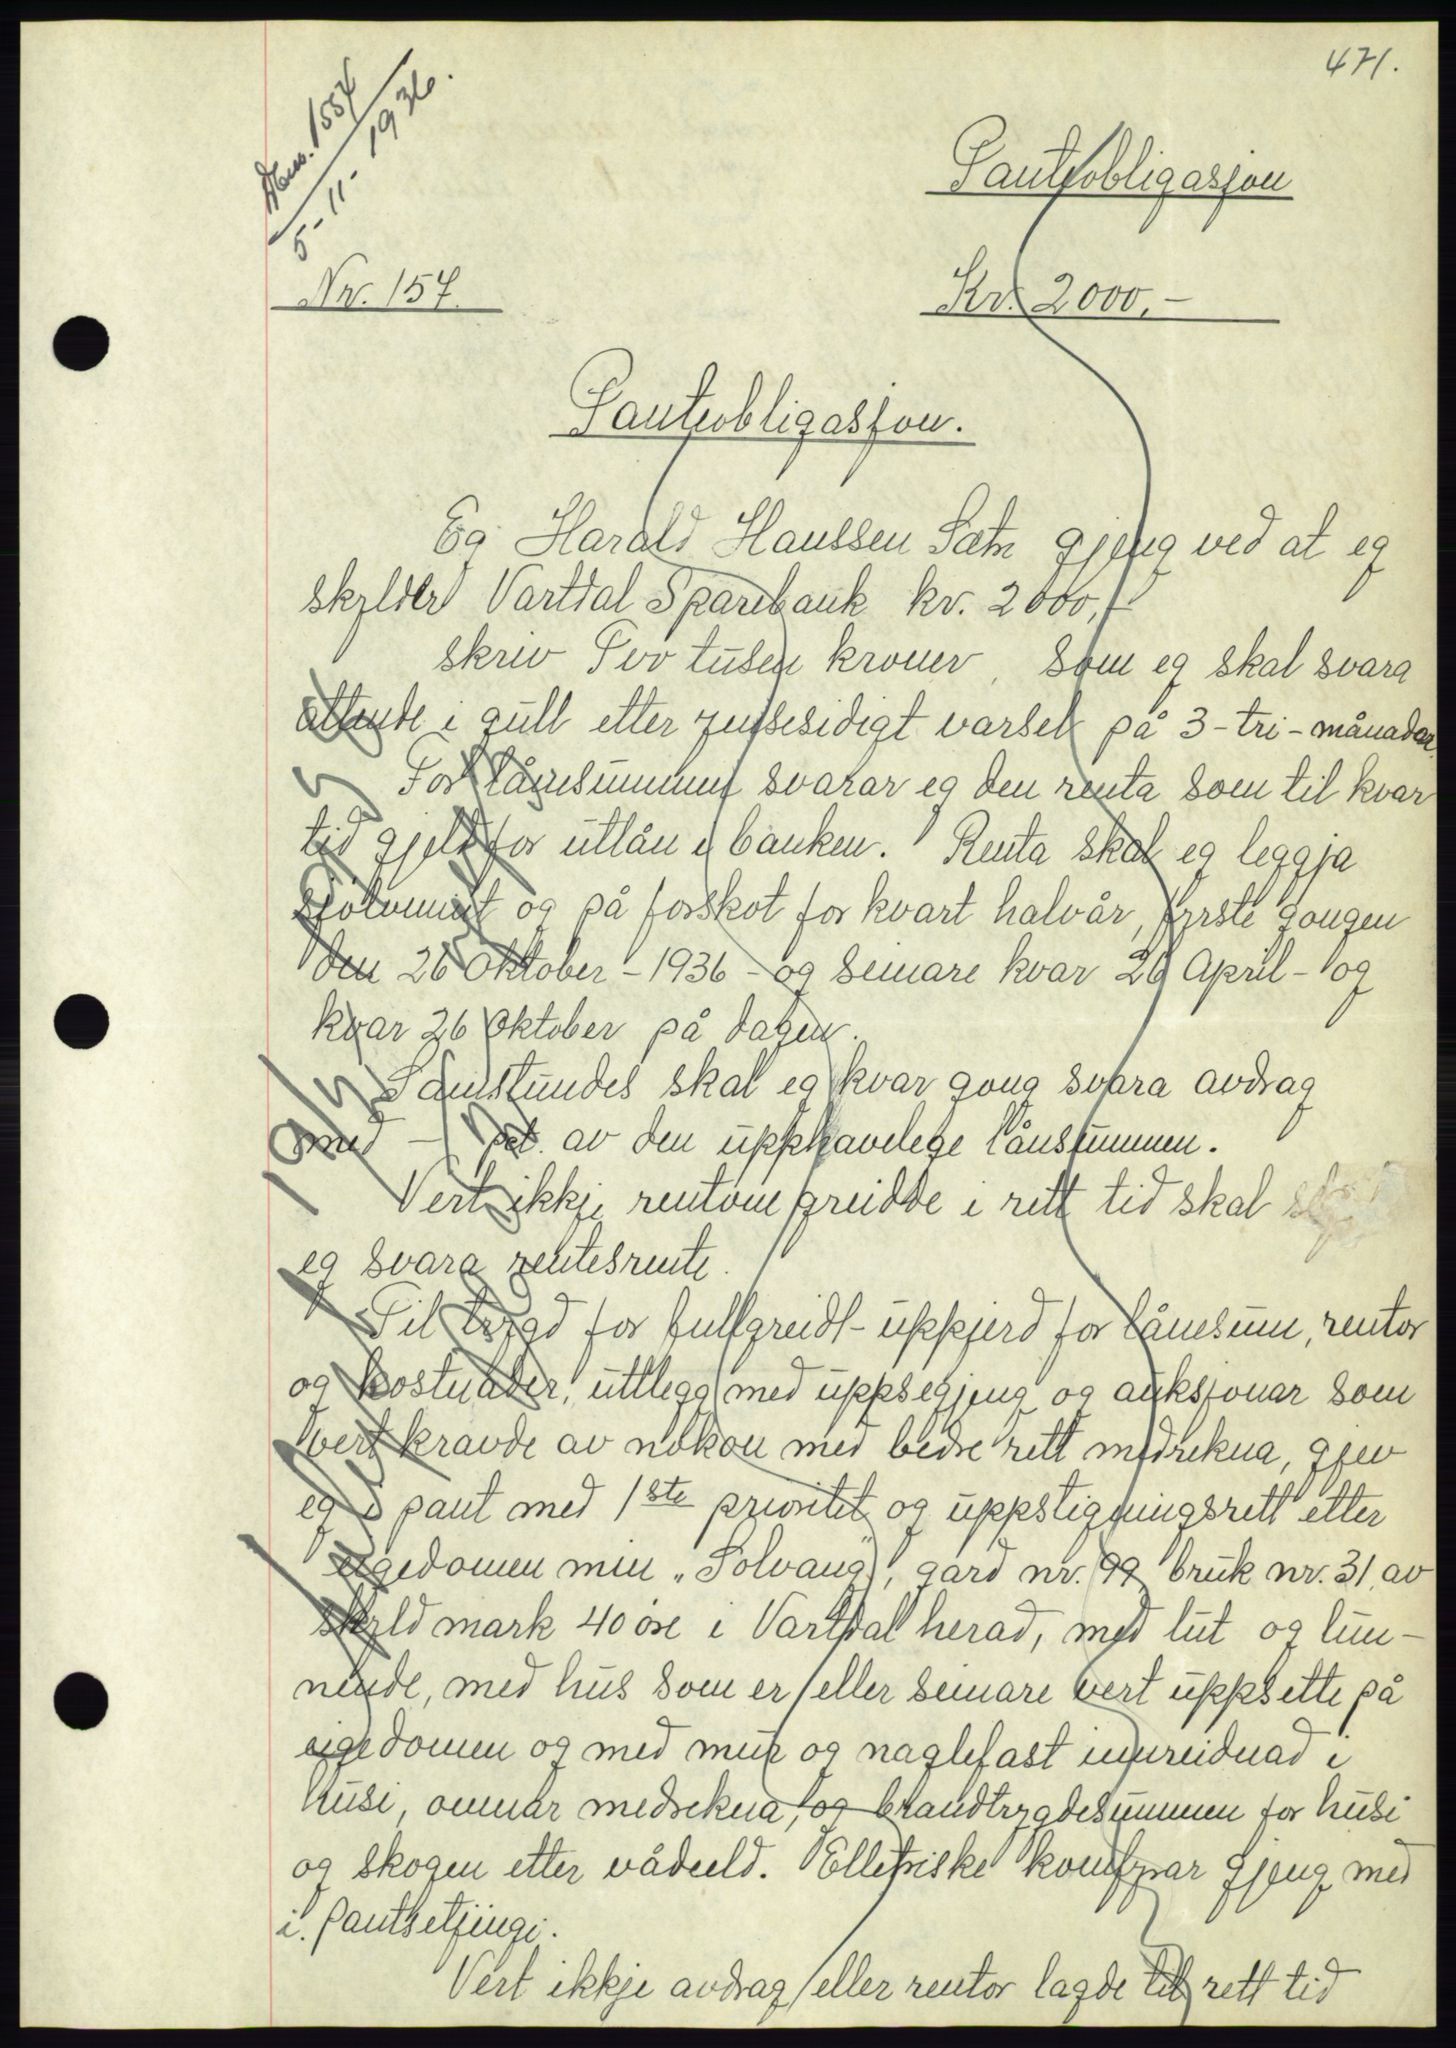 471.
Nr. 1554
5-11-1936.
Pantobligasjon
Nr. 157.
Kr. 2000,-
Pantobligasjon.
Eg Harald Hanssen Sætre gjeng ved at eg
skylder Vartdal Sparebank kr. 2000,-
skriv Tvo tusen kroner, som eg skal svara
attende i gull etter gjensesidigt varsel på 3-tri-månadar.
For lånesummen svarar eg den renta som til kvar
tid gjeld for utlån i banken. Renta skal eg leggja
sjølvmint og på forskot for kvart halvår, fyrste gongen
den 26 Oktober - 1936 - og seinare kvar 26 April - og
kvar 26 Oktober på dagen.
Samstundes skal eg kvar gong svara avdrag
med — pct. av den upphavelege lånsummen.
Vert ikkje rentone greidde i rett tid skal
eg svara rentesrente.
Til trygd for fullgreidt-uppgjerd for lånesum, rentor
og kostnader, uttlegg med uppsegjeng og auksjonar som
vert kravde av nokon med bedre rett medrekna, gjev
eg i pant med 1ste prioritet og uppstigningsrett etter
eigedomen min "Solvang", gard nr. 99, bruk nr. 31, av
skyld mark 40 øre i Vartdal herad, med lut og lun-
nende, med hus som er eller seinare vert uppsette på
eigedomen og med mur og naglefast innreidnad i
husi, omnar medrekna, og brandtrygdesummen for husi
og skogen etter vådeeld. Elletriske komfyrar gjeng med
i. pantsetjingi.
Vert ikkje avdrag eller rentor lagde til rett tid